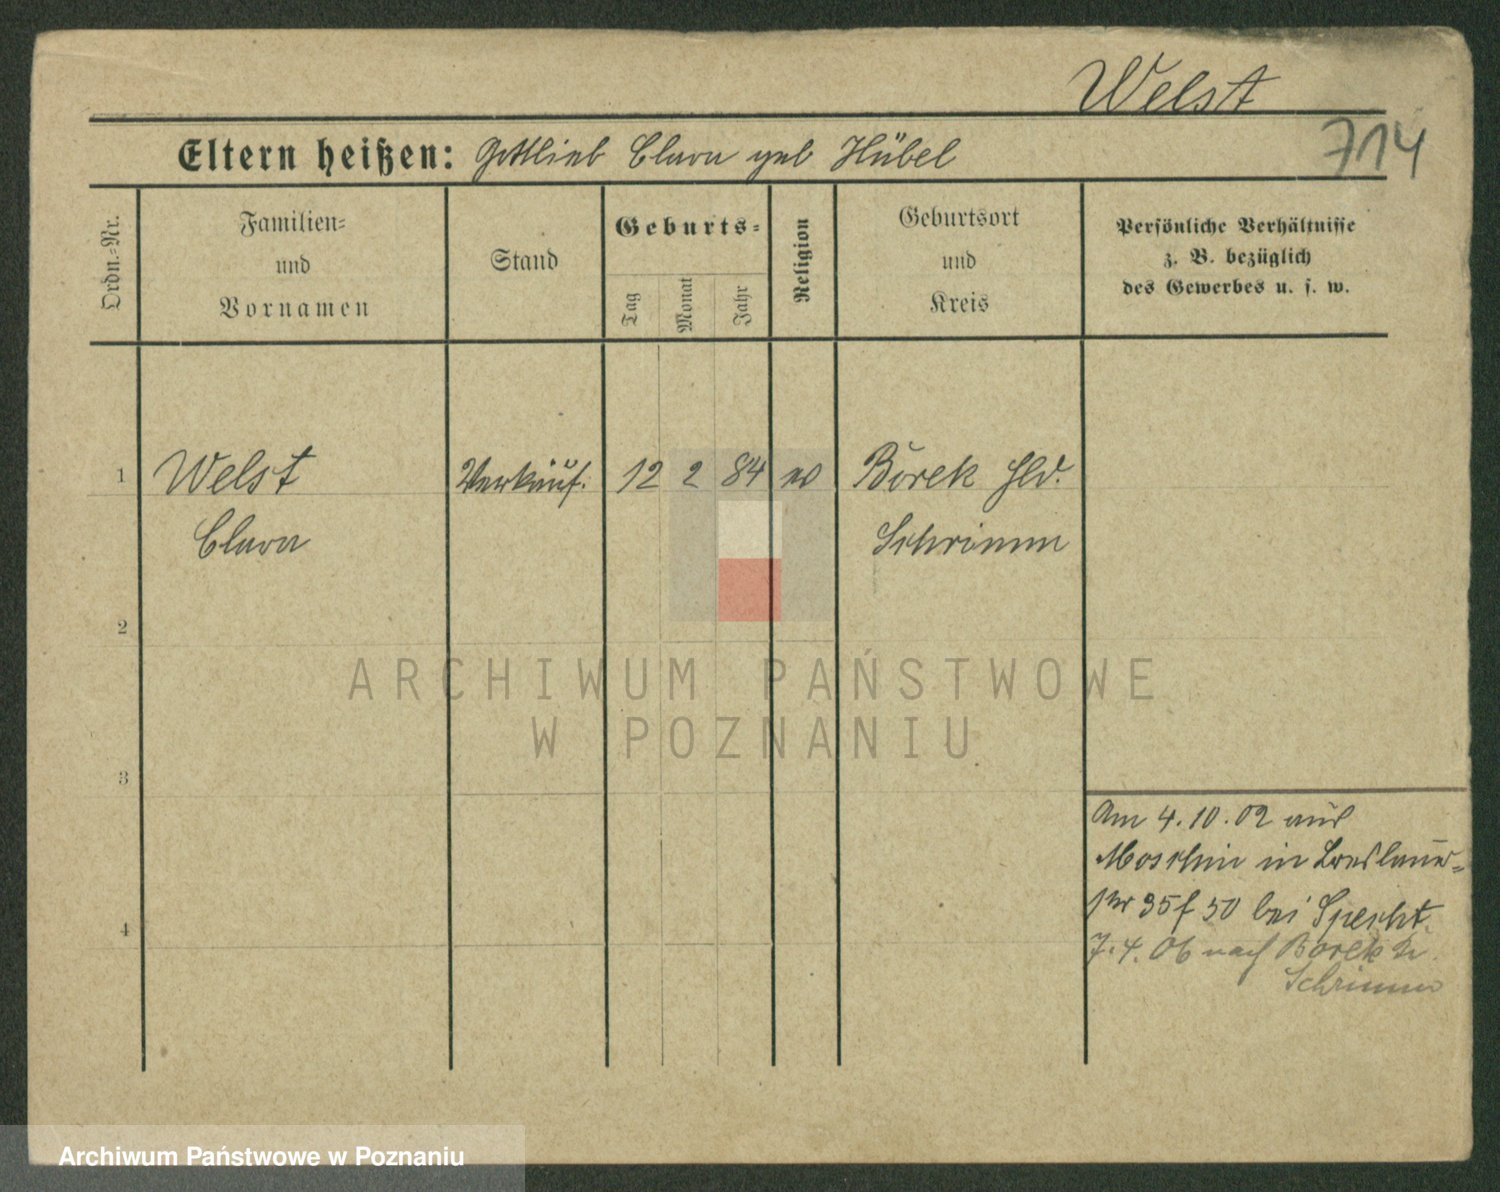 Welst
714
Eltern heißen: Gottlieb Clara geb Hübel
Ordn.-Nr.
Familien-
und
Vornamen
Stand
Geburts-
Tag
Monat
Jahr
Religion
Geburtsort
und
Kreis
Persönliche Verhältnisse
z. B. bezüglich
des Gewerbes u. s. w.
1 Welst Verkäuf. 12 2 84 ev Borek Hld.
Clara Schrimm
2
3
4
Am 4.10.02 aus
Moschin in Breslauer-
str 35 f 50 bei Specht.
7.4.06 nach Borek Kr.
Schrimm
ARCHIWUM PAŃSTWOWE
W POZNANIU
Archiwum Państwowe w Poznaniu